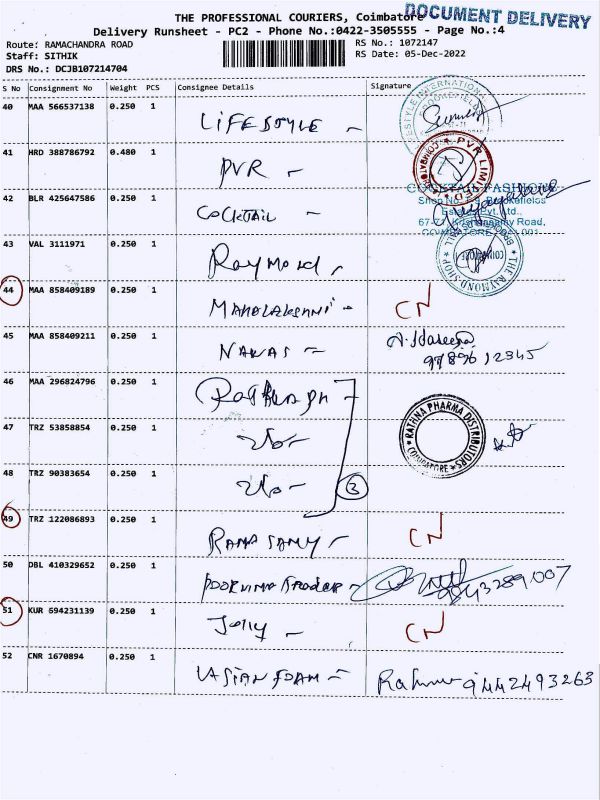 THE PROFESSIONAL COURIERS, Coimbatore
DOCUMENT DELIVERY
Delivery Runsheet - PC2 - Phone No.:0422-3505555 - Page No.:4
Route: RAMACHANDRA ROAD RS No.: 1072147
Staff: SITHIK RS Date: 05-Dec-2022
DRS No.: DCJB107214704
S No Consignment No Weight PCS Consignee Details Signature
40 MAA 566537138 0.250 1 LIFESTYLE
41 HRD 388786792 0.480 1 PVR PVR LIMITED
42 BLR 425647586 0.250 1 COCKTAIL
COCKTAIL FASHIONS
43 VAL 3111971 0.250 1 Raymond THE RAYMOND SHOP
44 MAA 858409189 0.250 1 MAHALAKSHMI CN
45 MAA 858409211 0.250 1 NAWAS
46 MAA 296824796 0.250 1
RATHNA PHARMA DISTRIBUTORS COIMBATORE
47 TRZ 53858854 0.250 1
48 TRZ 90383654 0.250 1 3
49 TRZ 122086893 0.250 1 RAMASAMY CN
50 DBL 410329652 0.250 1
51 KUR 694231139 0.250 1 Jolly CN
52 CNR 1670894 0.250 1 FOAM 9442493263